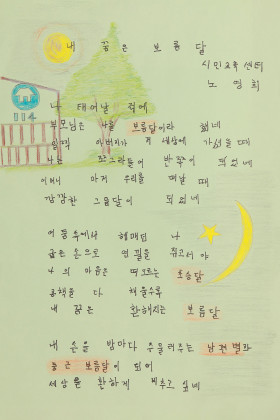 내 꿈은 보름달
시민교육센터
노영희
나 태어날 적에
부모님은 나를 보름달이라 했네
일찍 아버지가 저 세상에 가셨을 때
나는 쪼그라들어 반쪽이 되었네
어머니 마저 우리를 떠날 때
깜깜한 그믐달이 되었네
어둠속에서 헤매던 나
굽은 손으로 연필을 쥐고서야
나의 마음은 떠오르는 보름달
공책을 다 채울수록
내 꿈은 환해지는 보름달
내 손을 밤마다 주물러주는 남편별과
둥근 보름달이 되어
세상을 환하게 비추고 싶네
114